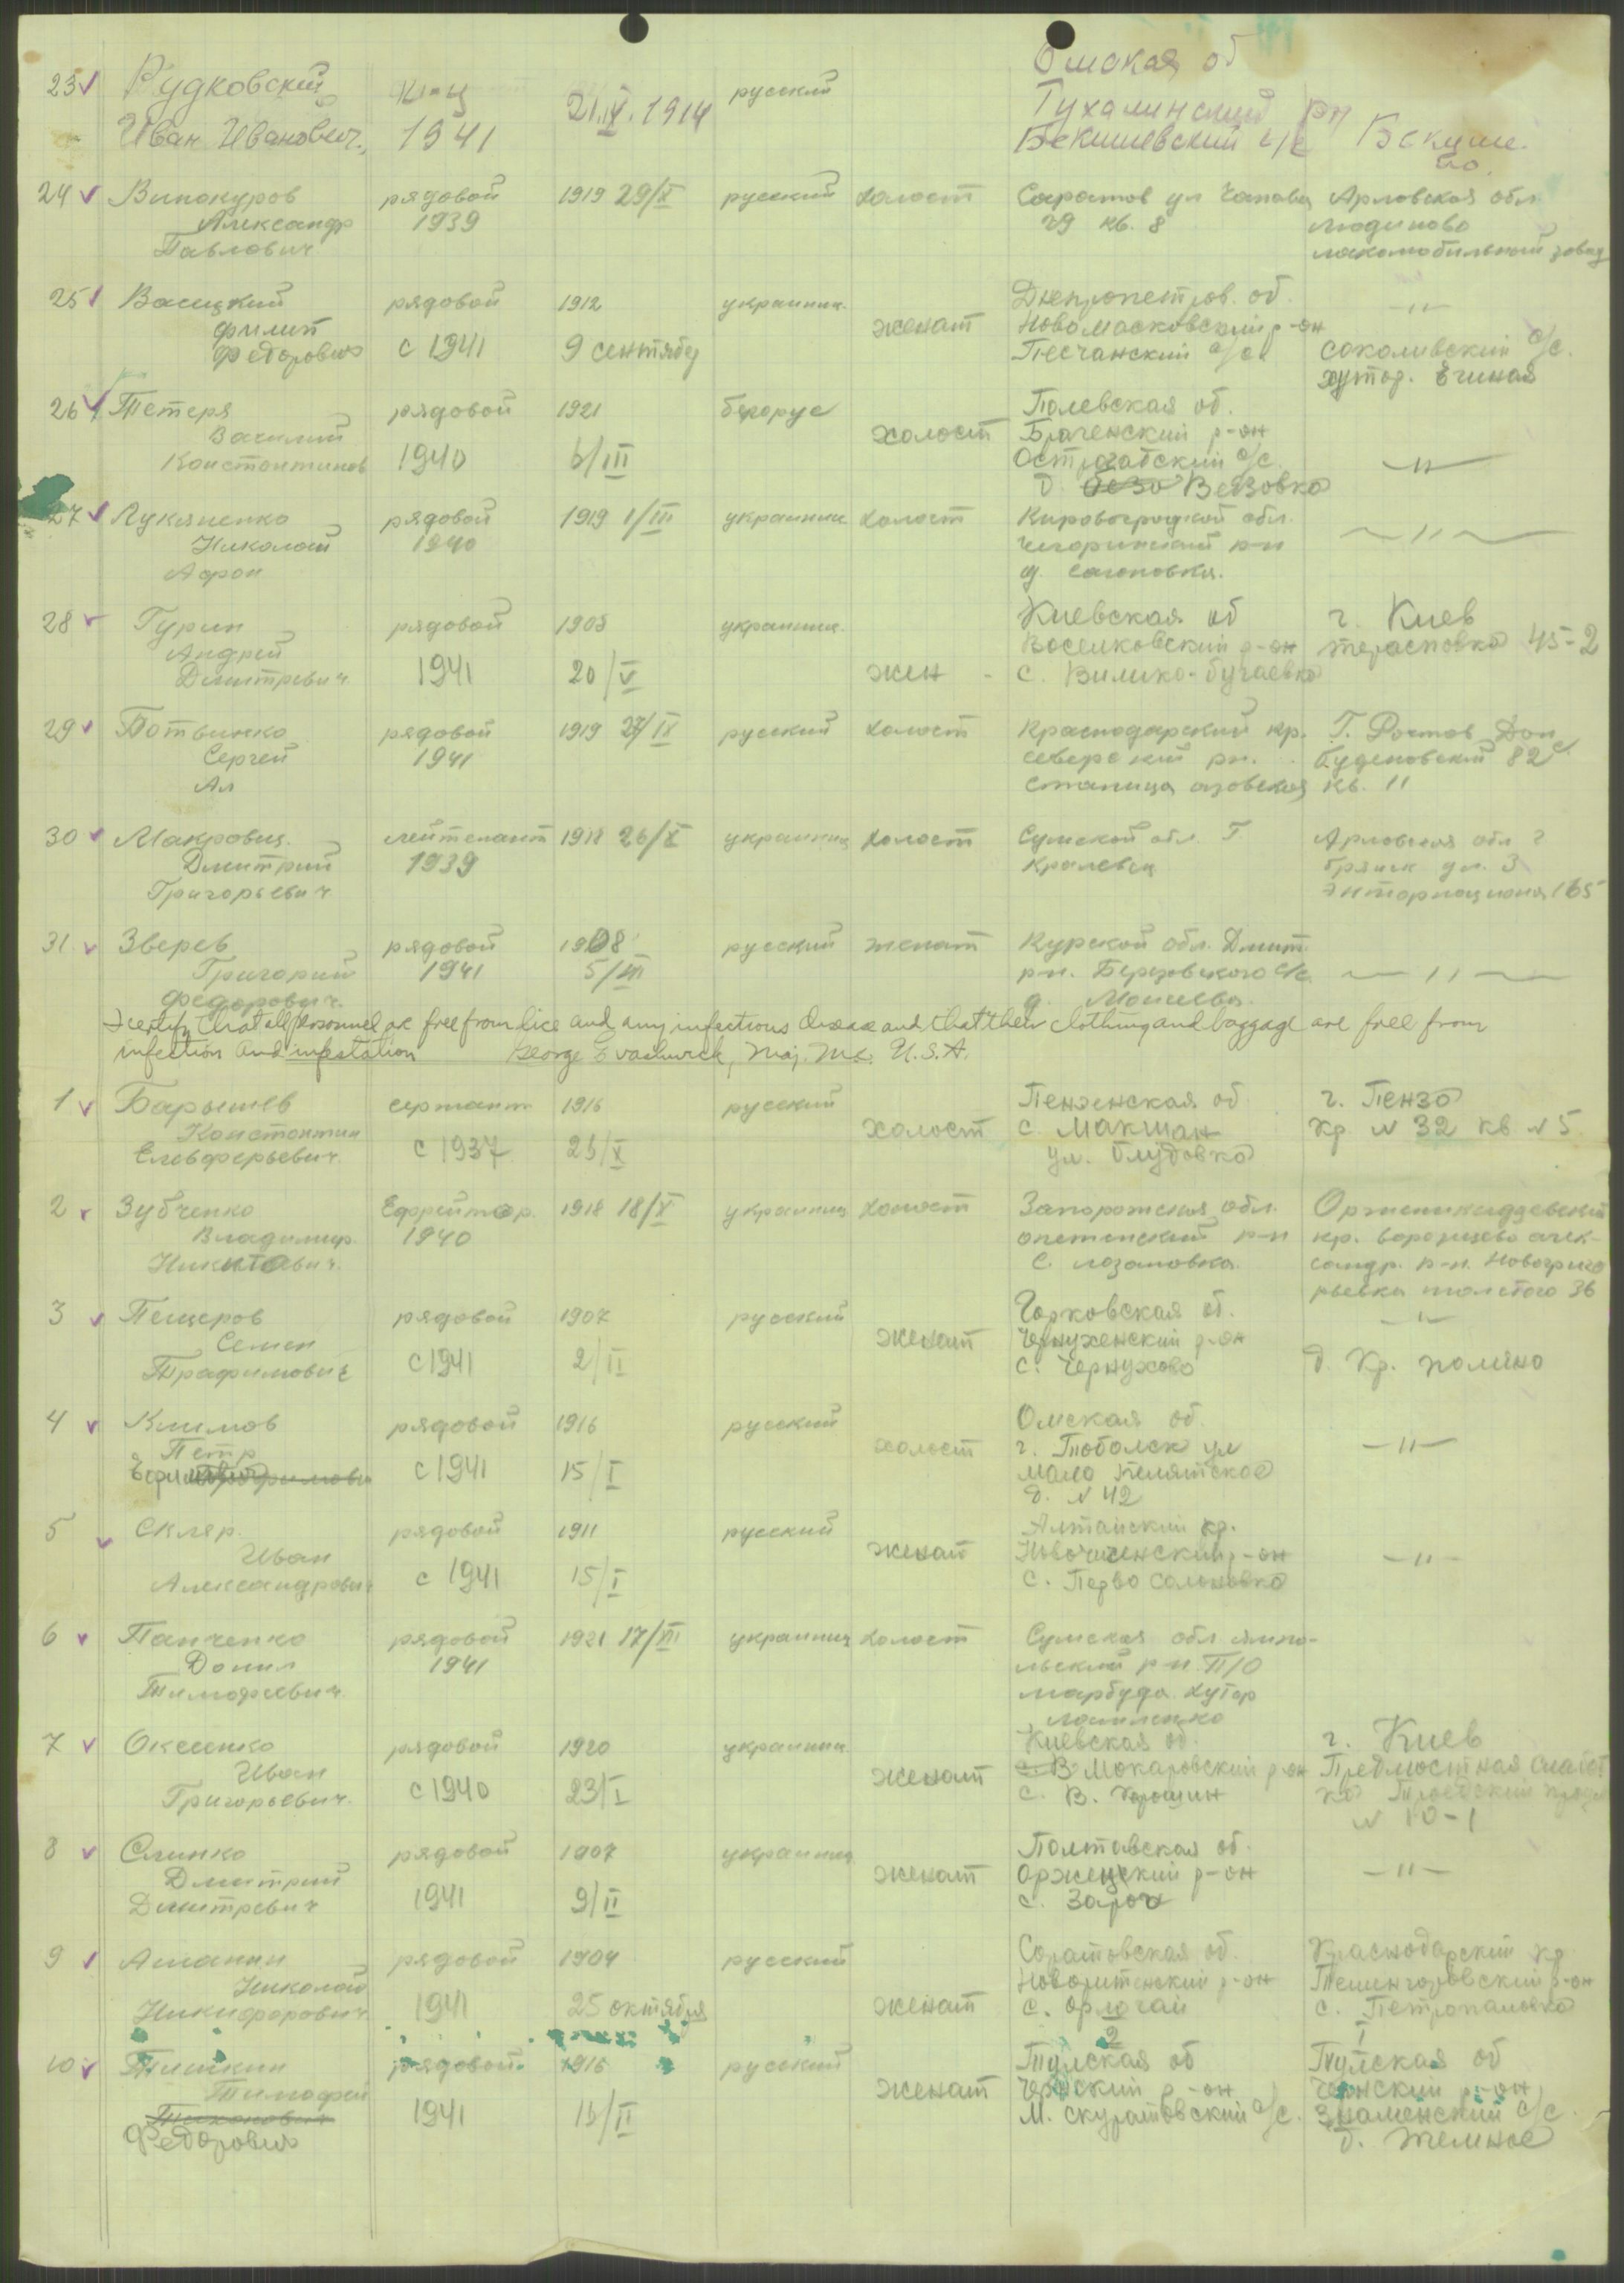 23 Рудковский
Иван Иванович.
кр-ц
1941
21.IV.1914
русский
Омская об
Тухалинский рн
Бекишевский с/с
Бекише.
во.
24 Винокуров
Александр
Павлович
рядовой
1939
1919 29/X
русский
холост
Саратов ул Чапова
79 кв. 8
Арловская обл
людиново
лакомобильный завод
25 Васицкий
Филип
Федорович
рядовой
с 1941
1912
9 сентября
украинец
женат
Днепропетров. об.
Новомосковский р-он
Песчанский с/с
—"—
соколивский с/с.
хутор.
26 Тетеря
Василий
Константинов
рядовой
1940
1921
6/III
белорус
холост
Полевская об.
Брагенский р-он
Острогатский с/с
д. Везовка
—"—
27 Лукяненко
Николай
Афон
рядовой
1940
1919 1/III
украинец
холост
Кировоградской обл.
чигоринский р-н
д. Сагоновка.
—"—
28 Гурин
Андрей
Дмитревич
рядовой
1941
1905
20/V
украинец.
жен -
Киевская об
Воселковский р-он
с. Вилико-бугаевка
г. Киев
терасповка 45-2
29 Потвинко
Сергей
Ал
рядовой
1941
1919 27/IX
русский
холост
Краснодарский кр.
северский рн.
станица азовская
Г. Ростов Дон
Буденовский 82
кв. 11
30 Макровец.
Дмитрий
Григорьевич
лейтенант
1939
1918 26/X
украинец
холост
Сумской обл. Г.
Кралевец
Арловская обл г
брянск ул. 3
энтернационал 165
31. Зверев
Григорий
Федорович.
рядовой
1941
1908
5/III
русский
женат
Курской обл. Дмит.
рн. Березовского с/с.
д. Моисеева.
—"—
I certify that all personnel are free from lice and any infectious disease and that their clothing and baggage are free from
infection and infestation George Evashwick, Maj. M.C. U.S.A.
1 Барышев
Константин
Елевферьевич.
сержант
с 1937
1916
русский
холост
Пензенская об
с. Макшан
ул. Глудовка
г. Пенза
кр № 32 кв № 5
2 Зубченко
Владимир.
Никитович.
Ефрейтор.
1940
1918 18/V
украинец
холост
Запорожская обл.
р-н
с. лозановка.
Орженикидзевский
кр. воронцево алек-
сандр. р-н. Новогриго
рьевка толстого 36
3 Пещеров
Семен
Трафимович
рядовой
с 1941
1907
2/II
русский
женат
Горковская об.
Чернухенский р-он
с. Чернухово
—"—
д. Кр. поляно
4 Климов
Петр
рядовой
с 1941
1916
15/I
русский
холост
Омская об.
г. Тоболск ул
мало Пелятское
д. № 42
—"—
5 Скляр.
Иван
Александрович
рядовой
с 1941
1911
15/I
русский
женат
Алтайский кр.
Новочиченский р-он
с. Перво Солоновко
—"—
6 Панченко
Донил
Тимофеевич.
рядовой
1941
1921 17/XII
украинец
холост
Сумская обл ямпо-
льский р-н. П/О
марбуда хутор
7 Оксенко
Иван
Григорьевич.
рядовой
с 1940
1920
23/I
украинец
женат
Киевская об.
Мокаровский р-он
с. В. Карашин
г. Киев
Предмостная слабот
№ 10-1
8 Слинко
Дмитрий
Дмитревич
рядовой
1941
1907
9/II
украинец
женат
Полтавская об.
Оржецский р-он
с. Зарог
—"—
9 Ананин
Николай
Никифорович
рядовой
1941
1904
25 октября
русский
женат
Соратовская об.
р-он
с. Орлогай
2
Краснодарский кр
р-он
с. Петропаловко
1
10 Тишкин
Тимофей
Тихонович
Федорович
рядовой.
1941
1916
русский
женат
Тулская об
Чернский р-он
М. скуратовский с/с.
Тулская об
Чернский р-он
Знаменский с/с
д. Жемное